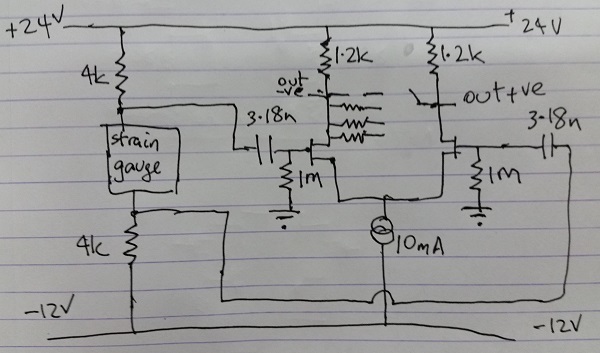 +24V
+24V
4k
1.2k
1.2k
out
-ve
out+ve
3.18n
3.18n
strain
gauge
1M
1M
4k
10mA
-12V
-12V